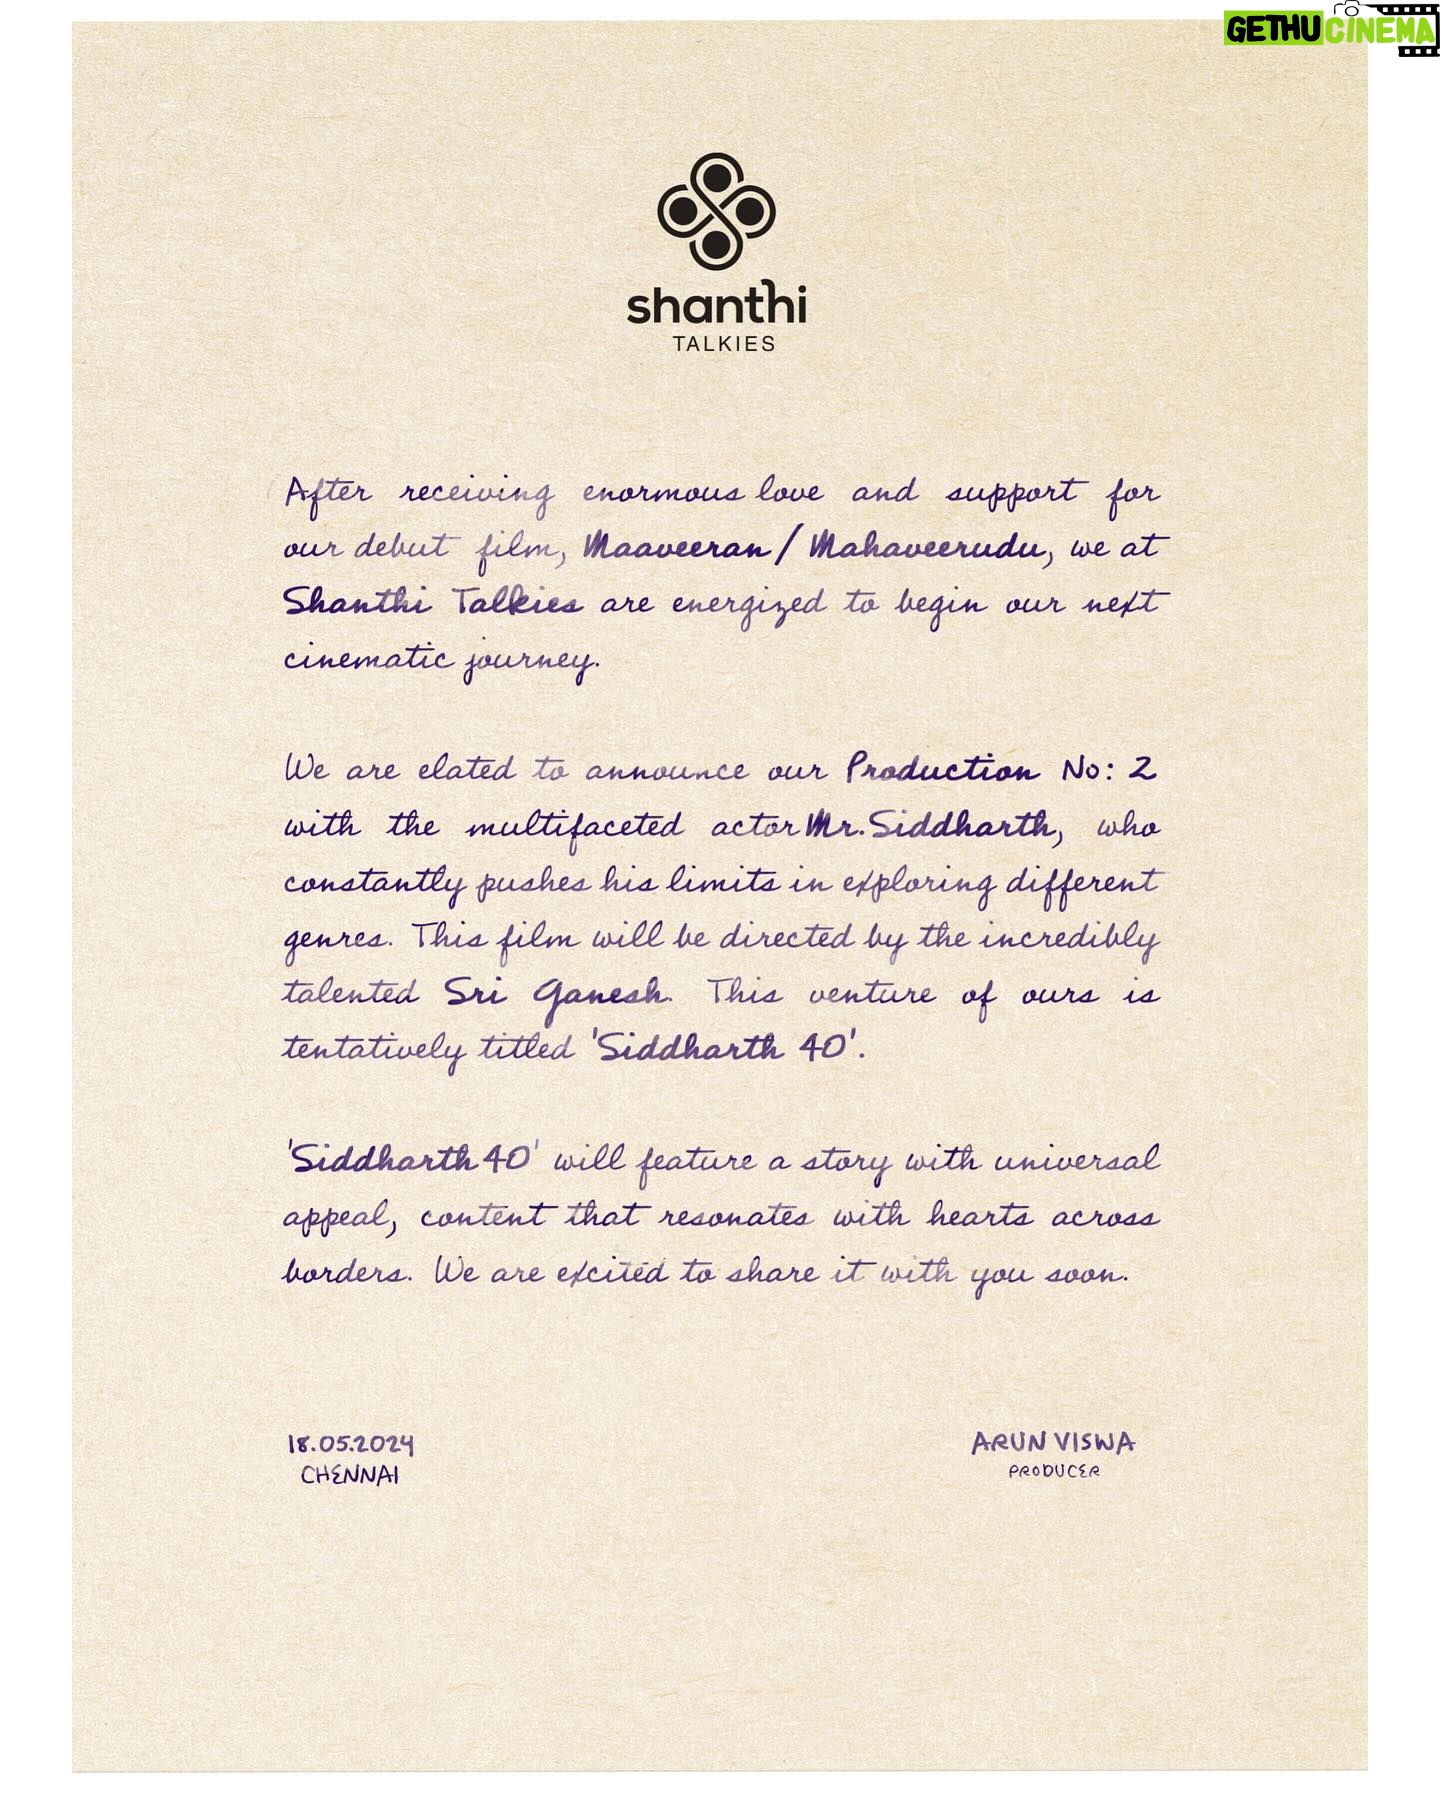 GETHU CINEMA
shanthi
TALKIES
After receiving enormous love and support for
our debut film, Maaveeran / Mahaveerudu, we at
Shanthi Talkies are energized to begin our next
cinematic journey.
We are elated to announce our Production No: 2
with the multifaceted actor Mr. Siddharth, who
constantly pushes his limits in exploring different
genres. This film will be directed by the incredibly
talented Sri Ganesh. This venture of ours is
tentatively titled 'Siddharth 40'.
'Siddharth 40' will feature a story with universal
appeal, content that resonates with hearts across
borders. We are excited to share it with you soon.
18.05.2024
CHENNAI
ARUN VISWA
PRODUCER